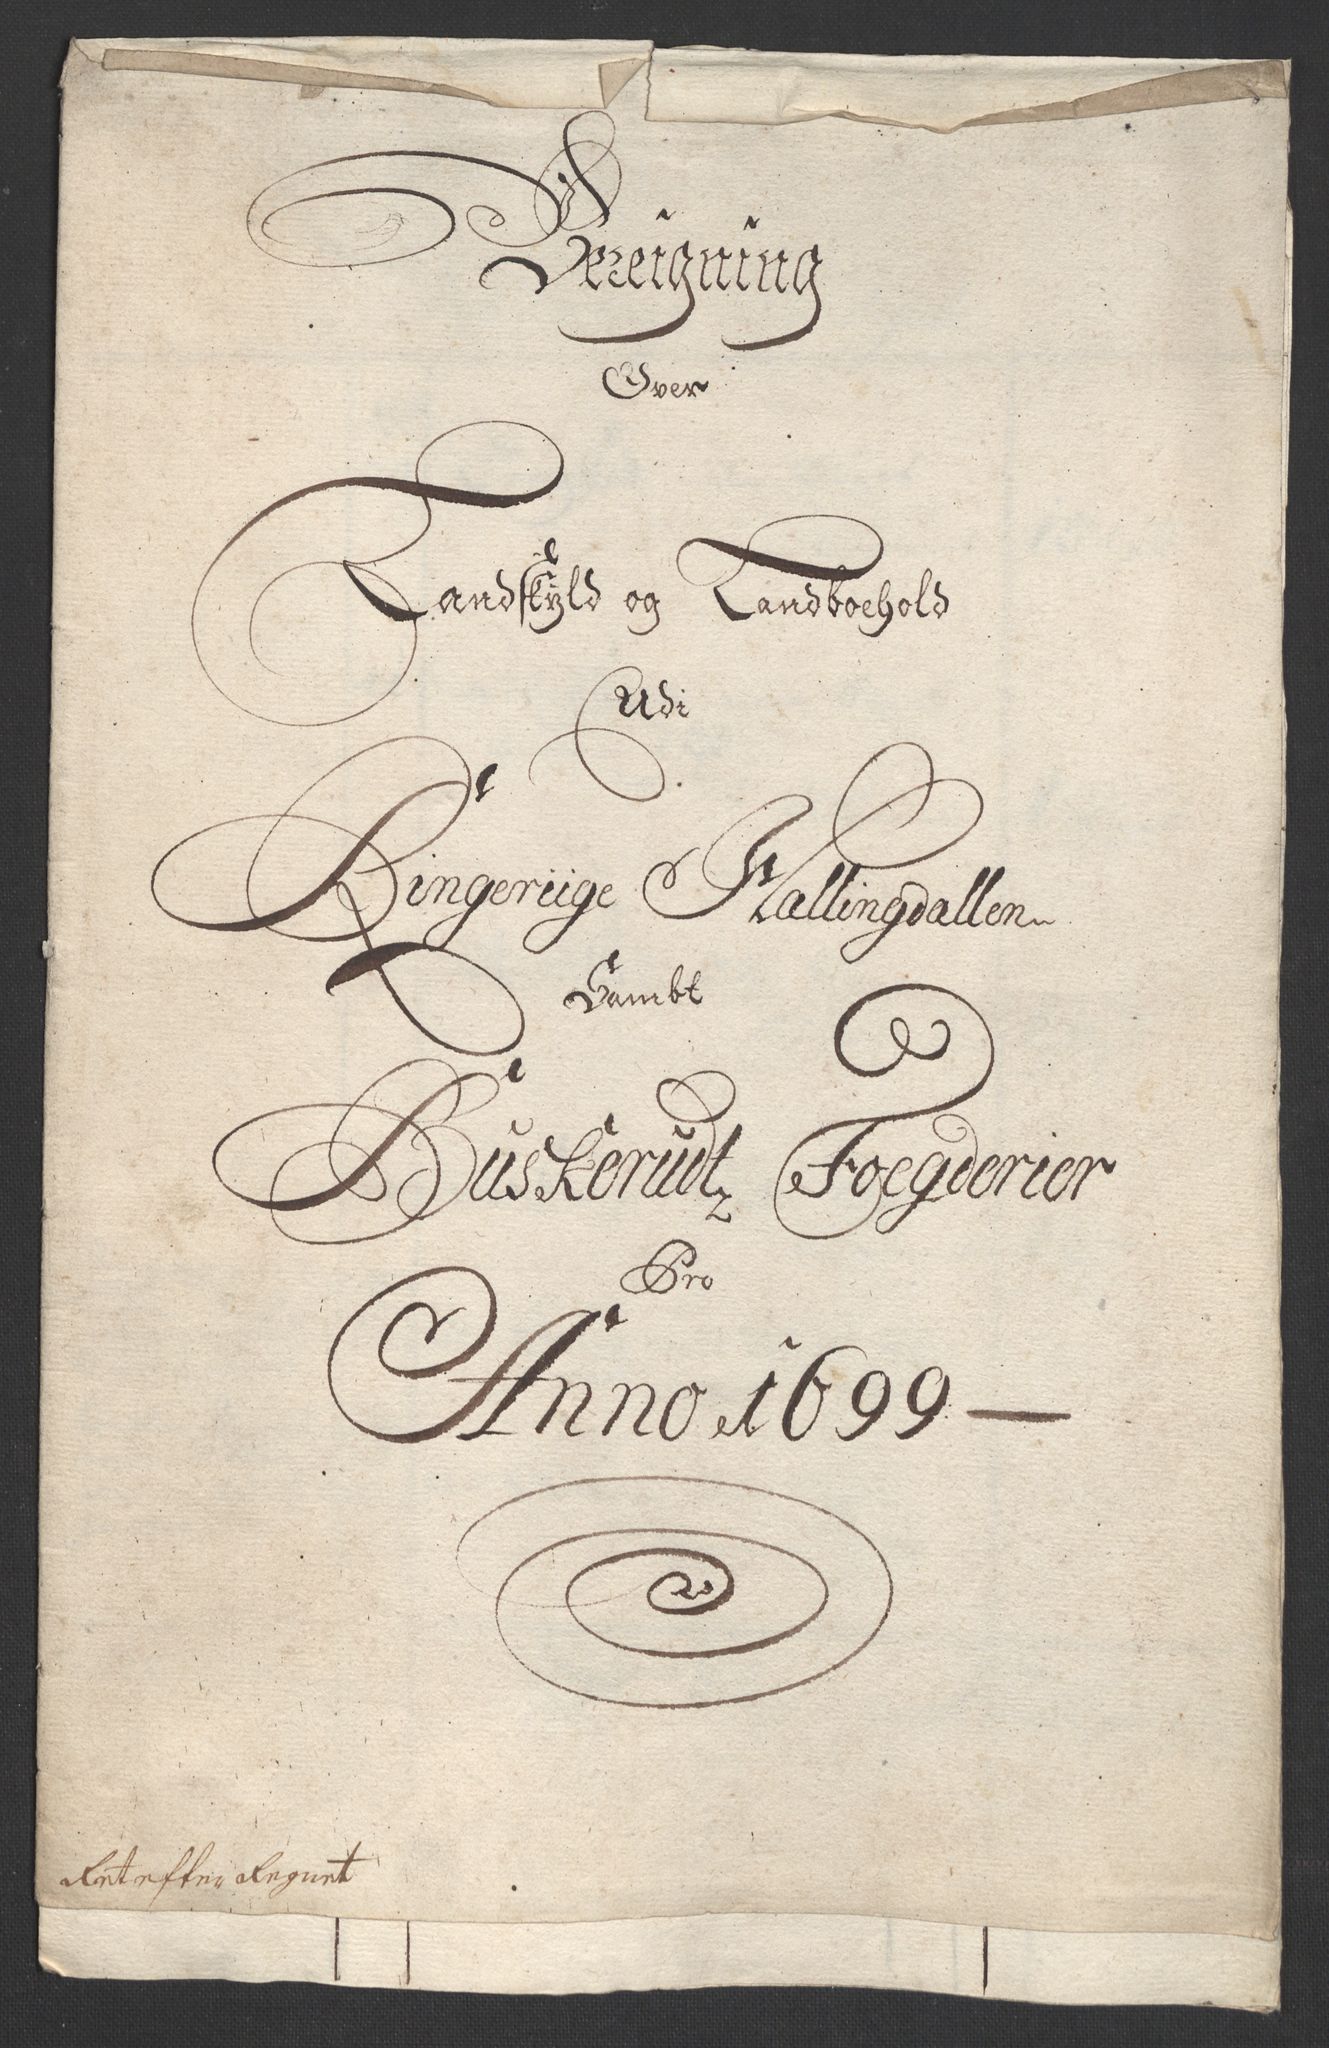 Bereigning
Over
Landskÿld og Landboehold
Udi
Ringeriige Hallingdallen
Sambt
Buskerudtz Foegderier
Pro
Anno 1699
Ret efter Regnet